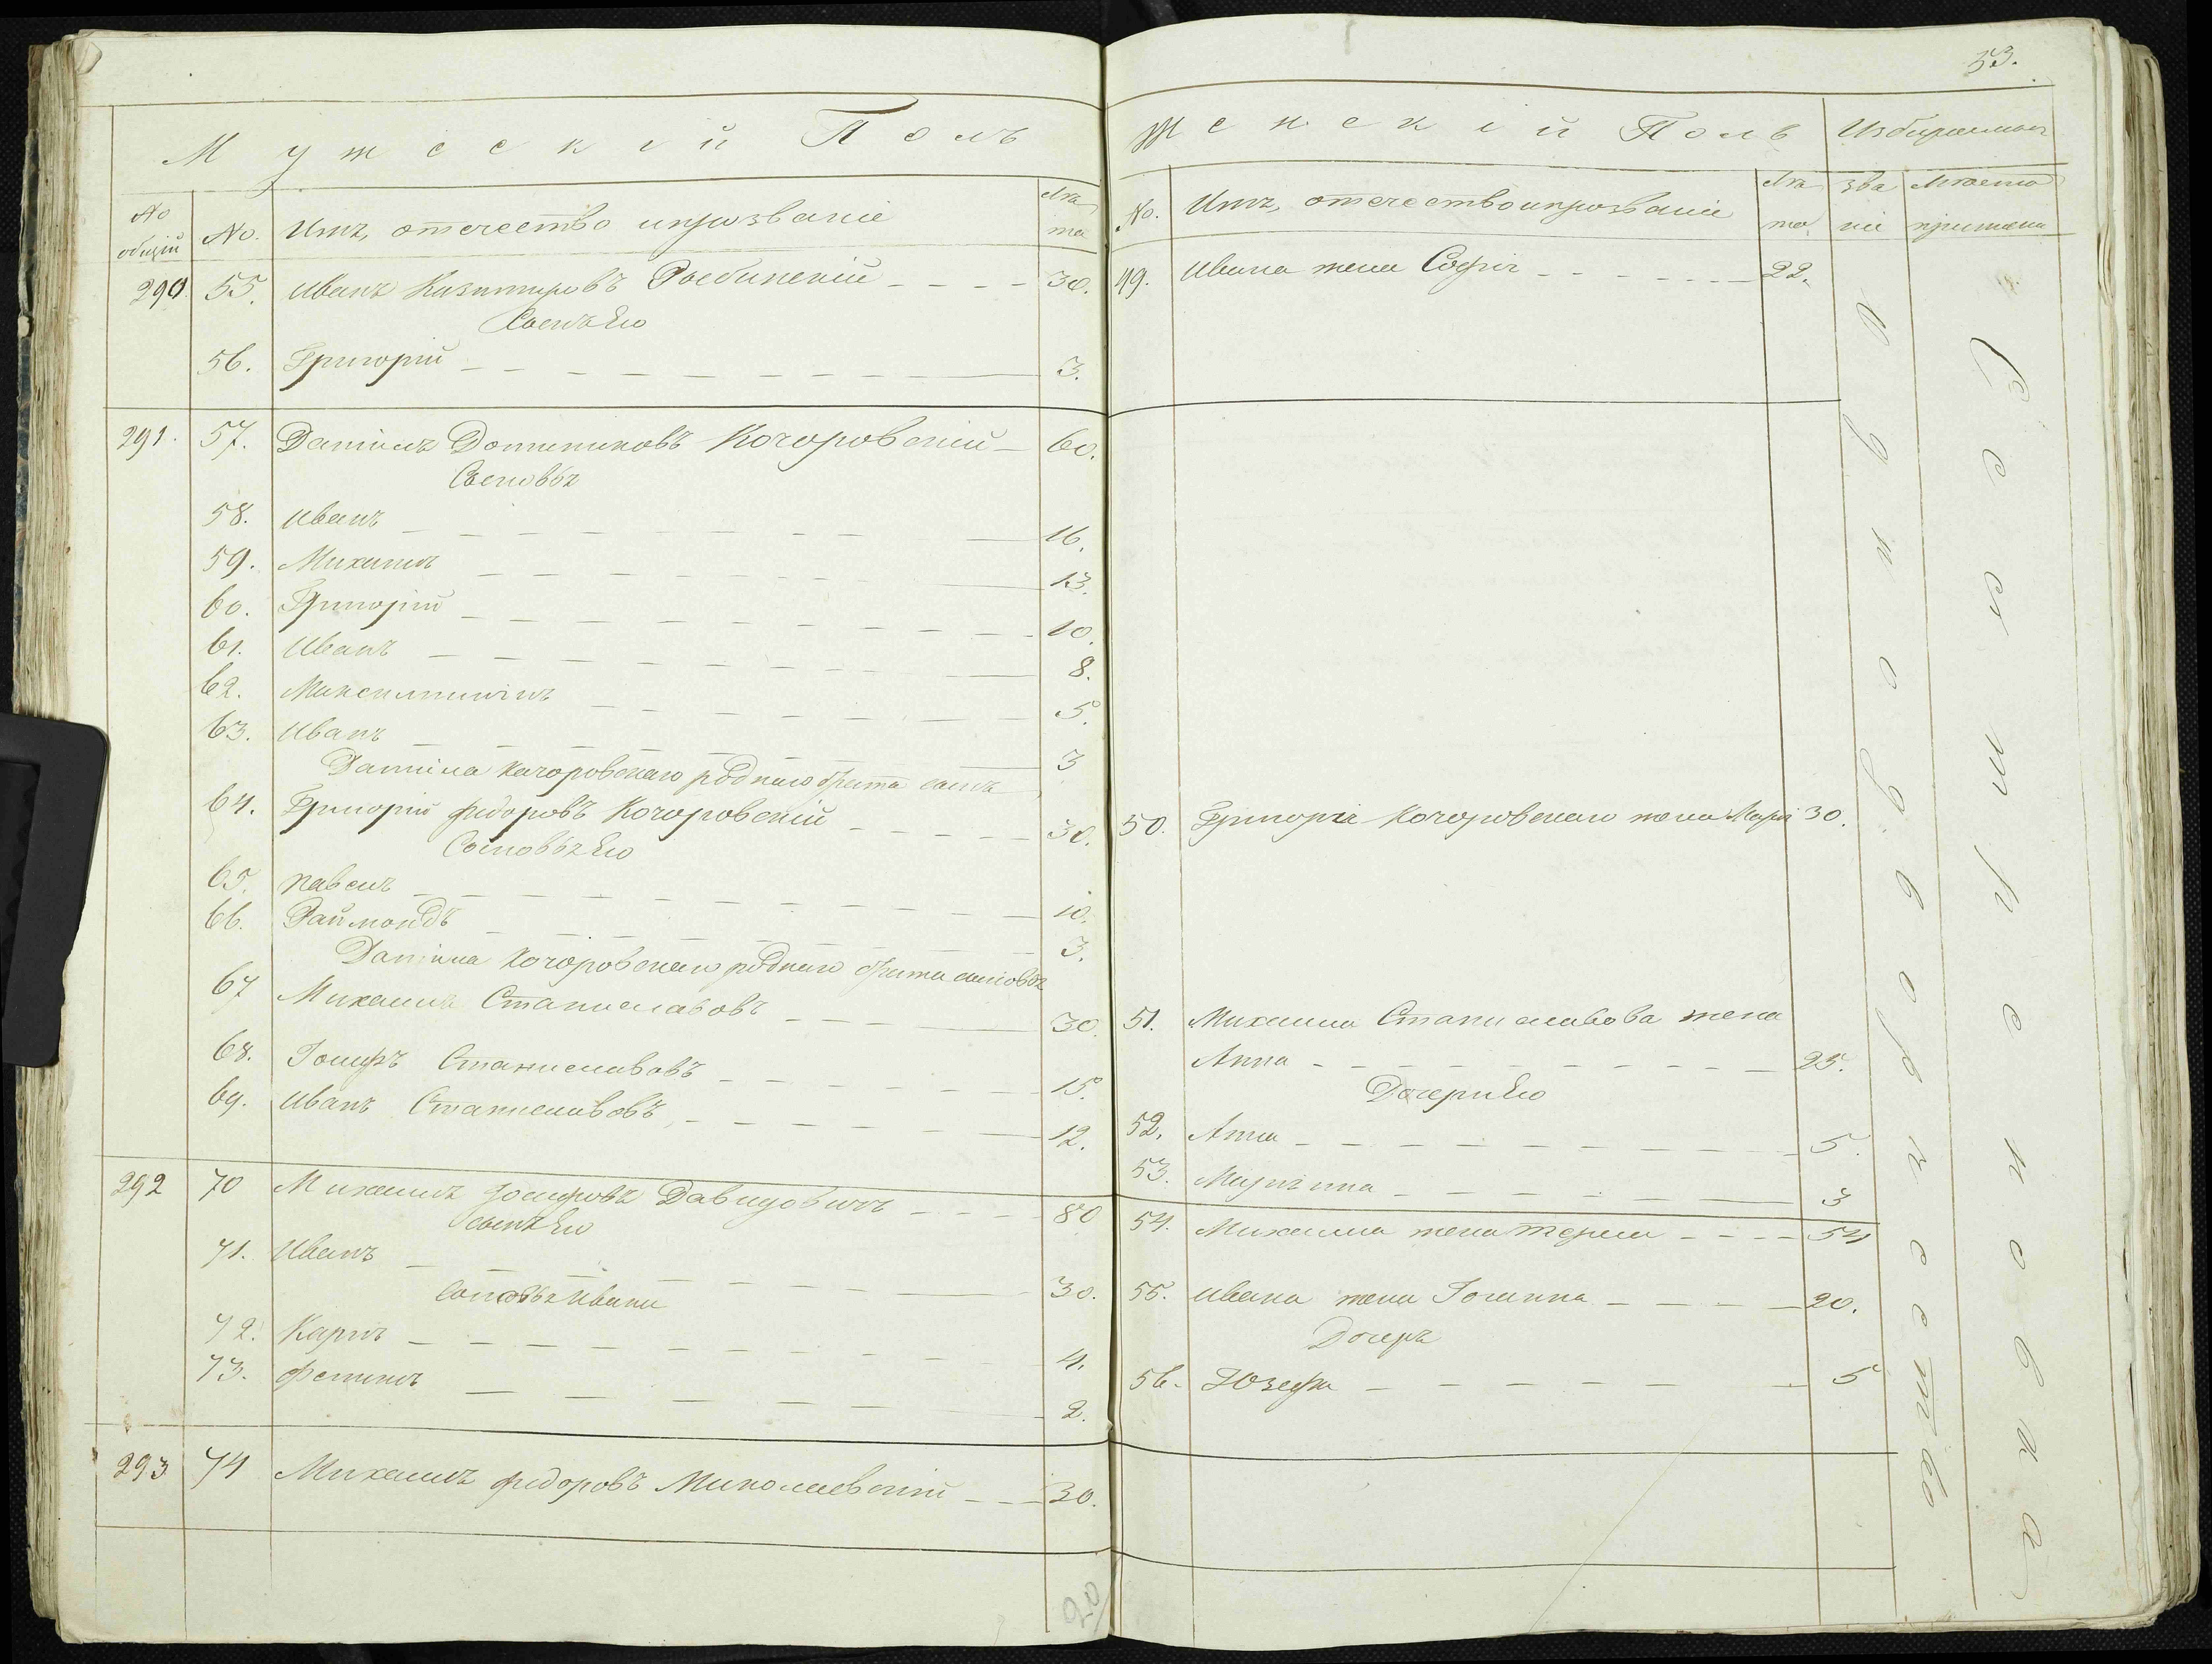 Мужескій Полъ
№ общій
№.
Имя, отечество ипрозваніе
лѣта
290. 55. Иванъ Казимировъ 30.
Сынъ Его
56. Григорій 3.
291. 57. Даніилъ Доминиковъ Кочоровскій 60.
Сыновья
58. Иванъ 16.
59. Михаилъ 13.
60. Григорій 10.
61. Иванъ 8.
62. Максимиліанъ 5.
63. Иванъ 3
Даніила Качоровскаго роднаго брата сынъ
64. Григорій федоровъ Кочоровскій 30.
Сыновья Его
65. павелъ 10.
66. Раймондъ 3.
Даніила Кочоровскаго роднаго брата сыновья
67 Михаилъ Станиславовъ 30
68. Іосифъ Станиславовъ 15.
69. Иванъ Станиславовъ 12.
292 70 Михаилъ Іосифовъ Давидовичъ 80
сынъ Его
71. Иванъ 30.
Сыновья Ивана
72. Карлъ 4.
73. 2.
293 74 Михаилъ федоровъ Миколаевскій 30.
20
53.
Женскій Полъ
Избираемыя
№.
Имя, отечество ипрозваніе
лѣта
званія
мѣста
49. Ивана жена Софія 22.
50. Григорія Кочоровскаго жена Марія 30.
51. Михаила Станиславова жена
Анна 25.
Дочери Его
52. Анна 5.
53. Маріанна 3
54. Михаила жена 54
55. Ивана жена 20.
Дочеръ
56. Юзефа 5